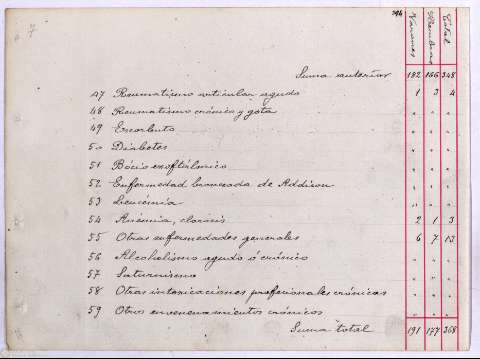 Varones Hembras Total
Suma anterior 182 166 348
47 Reumatismo articular agudo 1 3 4
48 Reumatismo crónico y gota " " "
49 Escorbuto " " "
50 Diabetes " " "
51 Bócio exoftálmico " " "
52 Enfermedad bronceada de Addison " " "
53 Leucémia " " "
54 Anémia, clorósis 2 1 3
55 Otras enfermedades generales 6 7 13
56 Alcoholismo agudo ó crónico " " "
57 Saturnismo " " "
58 Otras intoxicaciones profesionales crónicas " " "
59 Otros envenenamientos crónicos " " "
Suma total 191 177 368